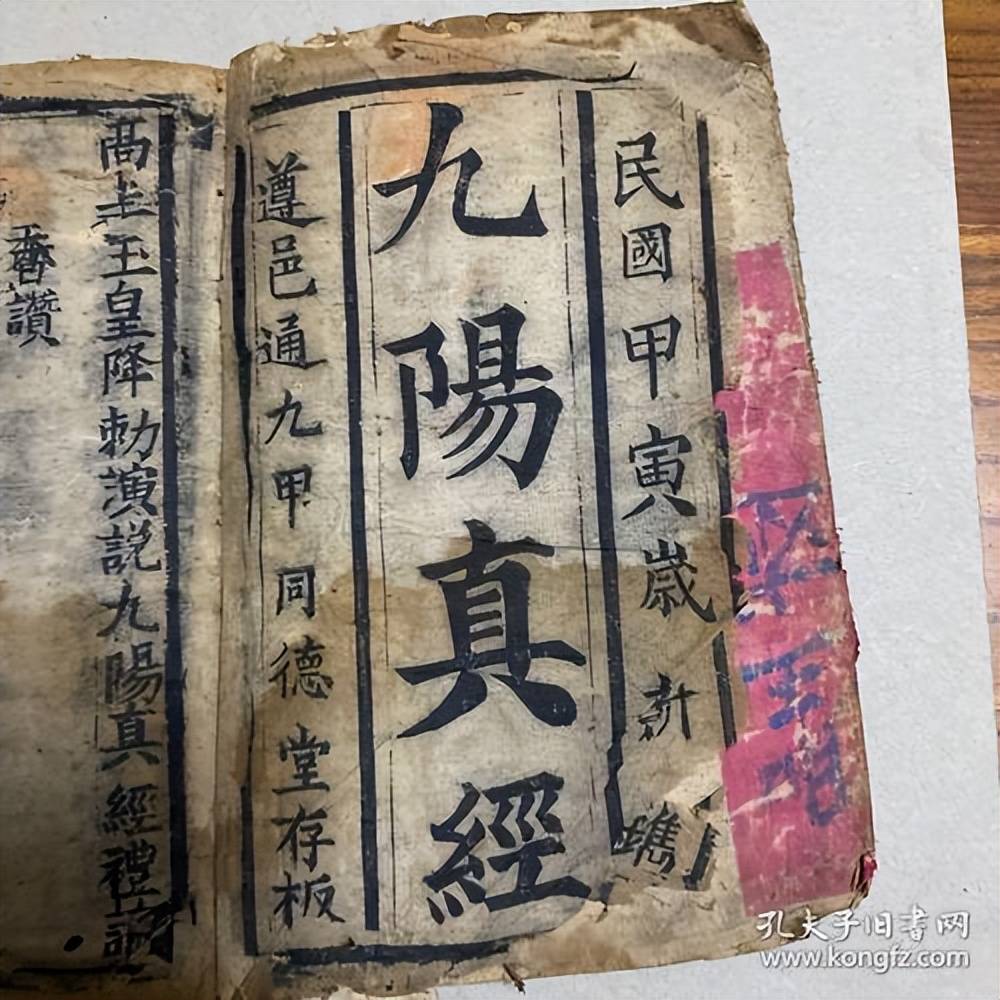 民國甲寅歳新鐫
九陽真經
遵邑通九甲同德堂存板
高上玉皇降勅演説九陽真經禮
香讚
孔夫子旧书网
www.kongfz.com